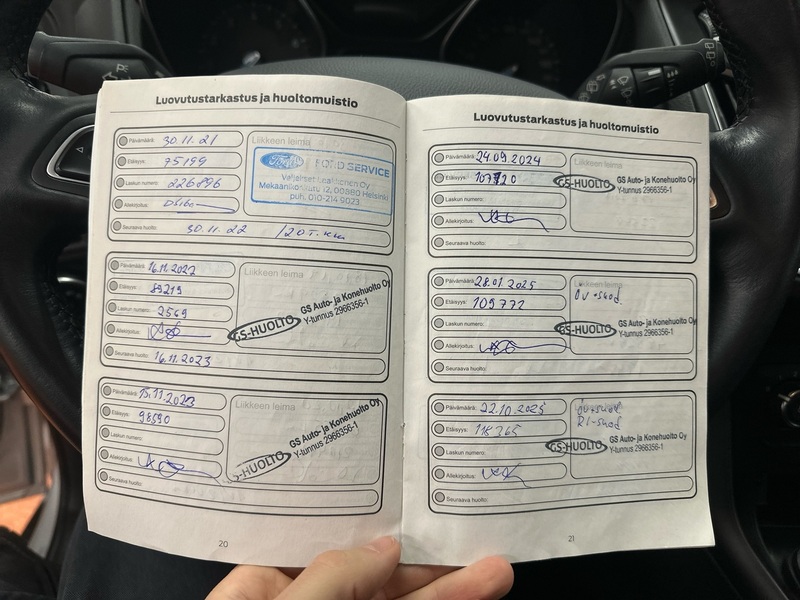 Luovutustarkastus ja huoltomuistio
Päivämäärä: 30.11.21
Etäisyys: 75199
Laskun numero: 226896
Allekirjoitus:
Seuraava huolto: 30.11.22 /20 T.km
Liikkeen leima
Ford FORD SERVICE
Mekaanikonkatu 12, 00880 Helsinki
puh. 010-214 9023
Päivämäärä: 16.11.2022
Etäisyys: 89219
Laskun numero: 2569
Allekirjoitus:
Seuraava huolto: 16.11.2023
Liikkeen leima
GS-HUOLTO GS Auto- ja Konehuolto Oy
Y-tunnus 2966356-1
Päivämäärä: 15.11.2023
Etäisyys: 98590
Laskun numero:
Allekirjoitus:
Seuraava huolto:
Liikkeen leima
-HUOLTO GS Auto- ja Konehuolto Oy
Y-tunnus 2966356-1
20
Luovutustarkastus ja huoltomuistio
Päivämäärä: 24.09.2024
Etäisyys: 107720
Laskun numero:
Allekirjoitus:
Seuraava huolto:
Liikkeen leima
GS-HUOLTO GS Auto- ja Konehuolto Oy
Y-tunnus 2966356-1
Päivämäärä: 28.01.2025
Etäisyys: 109772
Laskun numero:
Allekirjoitus:
Seuraava huolto:
Liikkeen leima
GS-HUOLTO GS Auto- ja Konehuolto Oy
Y-tunnus 2966356-1
Päivämäärä: 22.10.2025
Etäisyys: 116365
Laskun numero:
Allekirjoitus:
Seuraava huolto:
GS-HUOLTO GS Auto- ja Konehuolto Oy
Y-tunnus 2966356-1
21